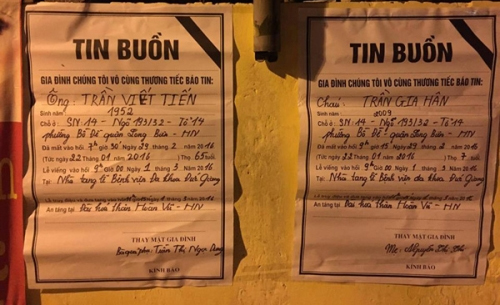 TIN BUỒN
GIA ĐÌNH CHÚNG TÔI VÔ CÙNG THƯƠNG TIẾC BÁO TIN:
Ông: TRẦN VIẾT TIẾN
Sinh năm 1952
Chỗ ở: SN: 14 - Ngõ 193/32 - Tổ 14
phường Bồ Đề quận Long Biên - HN
Đã mất vào hồi 9h 30 Ngày 29 tháng 2 năm 2016
(Tức ngày 22 Tháng 01 năm 2016) Thọ: 65 tuổi
Lễ viếng vào hồi 9h 00 Ngày 1 tháng 3 năm 2016
Tại: Nhà tang lễ Bệnh viện Đa khoa Đức Giang
An táng tại: Đài hoá thân Hoàn Vũ - HN
THAY MẶT GIA ĐÌNH
Trần Thị Ngọc
KÍNH BÁO
TIN BUỒN
GIA ĐÌNH CHÚNG TÔI VÔ CÙNG THƯƠNG TIẾC BÁO TIN:
Cháu: TRẦN GIA HÂN
Sinh năm 2009
Chỗ ở: SN: 14 - Ngõ 193/32 - Tổ 14
phường Bồ Đề quận Long Biên - HN
Đã mất vào hồi 9h 15 Ngày 29 tháng 2 năm 2016
(Tức ngày 22 Tháng 01 năm 2016) Thọ: 7 tuổi
Lễ viếng vào hồi 9h 00 Ngày 1 tháng 3 năm 2016
Tại: Nhà tang lễ Bệnh viện đa khoa Đức Giang
An táng tại: Đài hoá thân Hoàn Vũ - HN
THAY MẶT GIA ĐÌNH
Mẹ: Nguyễn Thị
KÍNH BÁO